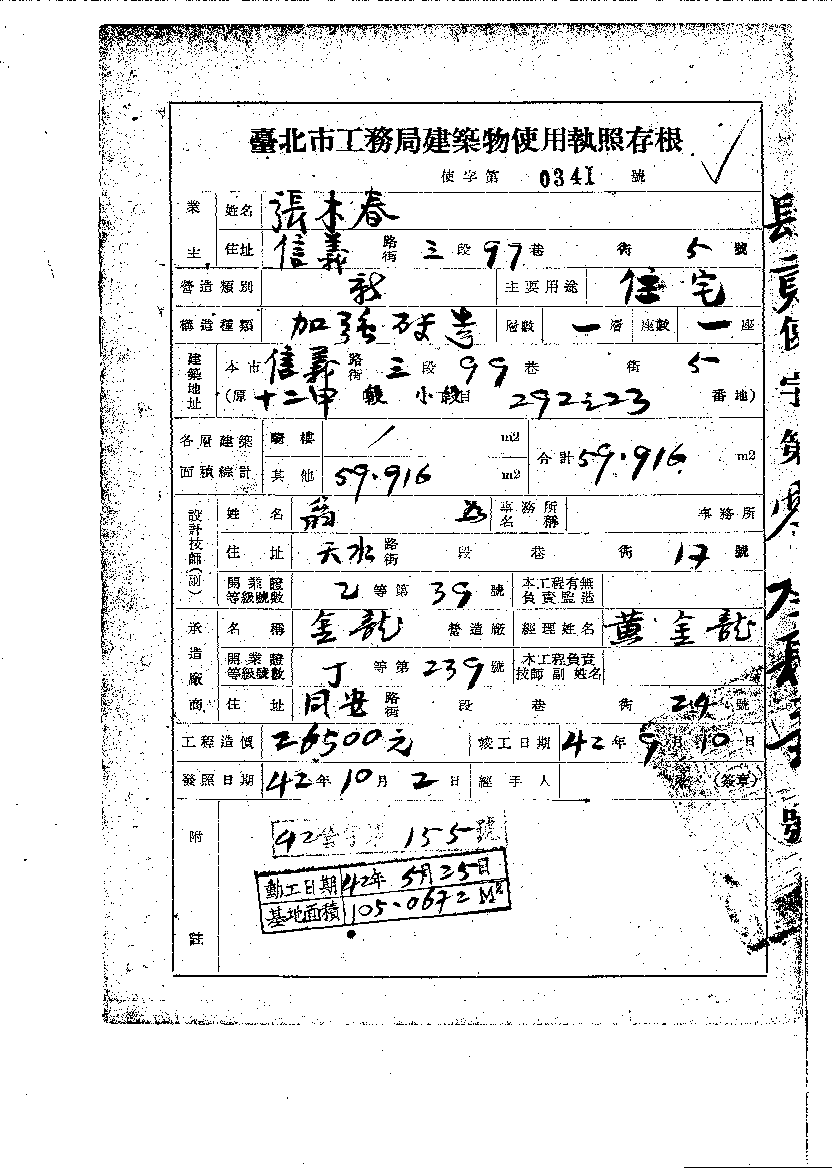 臺北市工務局建築物使用執照存根
使字第 0341 號
業主 姓名 張木春
住址 信義 路街 三 段 97 巷 街 5 號
營造類別 新 主要用途 住宅
構造種類 加強磚造 層數 一 層 座數 一 座
建築地址 本市 信義 路街 三 段 99 巷 街 5
(原 十二甲 段 小段目 292之23 番地)
各層建築面積綜計 騎樓 / m2 合計 59.916 m2
其他 59.916 m2
設計技師(前) 姓名 翁 事務所名稱 事務所
住址 天水 路街 段 巷 街 17 號
開業證等級號數 乙 等第 39 號 本工程有無負責監造
承造廠商 名稱 金龍 營造廠 經理姓名 黃金龍
開業證等級號數 丁 等第 239 號 本工程負責技師副姓名
住址 同安 路街 段 巷 街 24 號
工程造價 26500元 竣工日期 42年 9月 10日
發照日期 42年 10月 2日 經手人 (簽章)
附註
42 155號
動工日期 42年 5月25日
基地面積 105.0672 M2